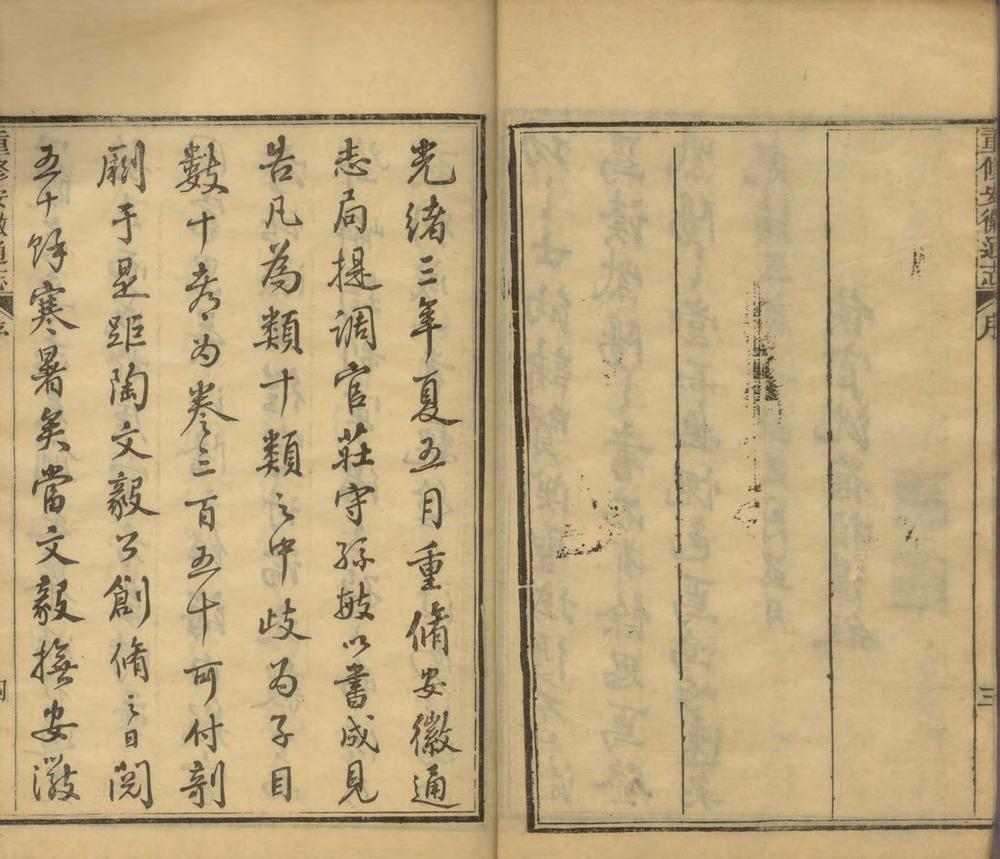 重修安徽通志
序
三
光緒三年夏五月重脩安徽通
志局提調官莊守孫敏以書成見
告凡為類十類之中歧為子目
數十者為卷三百五十可付剞
劂于是距陶文毅公創脩之日閱
五十餘寒暑矣當文毅撫安徽
重修安徽通志